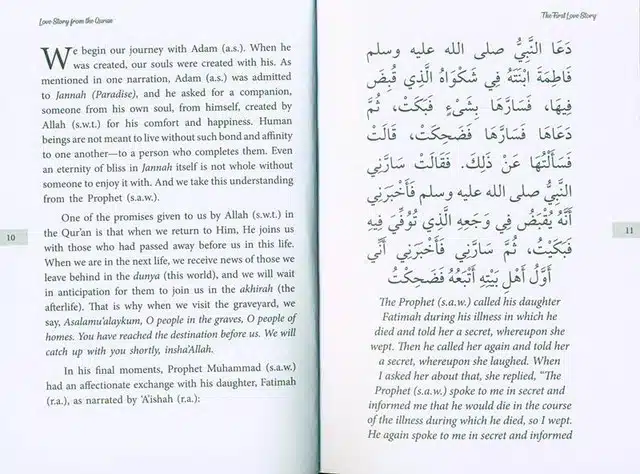 Love Story from the Quran
We begin our journey with Adam (a.s.). When he
was created, our souls were created with his. As
mentioned in one narration, Adam (a.s.) was admitted
to Jannah (Paradise), and he asked for a companion,
someone from his own soul, from himself, created by
Allah (s.w.t.) for his comfort and happiness. Human
beings are not meant to live without such bond and affinity
to one another—to a person who completes them. Even
an eternity of bliss in Jannah itself is not whole without
someone to enjoy it with. And we take this understanding
from the Prophet (s.a.w.).
One of the promises given to us by Allah (s.w.t.) in
the Qur'an is that when we return to Him, He joins us
with those who had passed away before us in this life.
When we are in the next life, we receive news of those we
leave behind in the dunya (this world), and we will wait
in anticipation for them to join us in the akhirah (the
afterlife). That is why when we visit the graveyard, we
say, Asalamu'alaykum, O people in the graves, O people of
homes. You have reached the destination before us. We will
catch up with you shortly, insha'Allah.
In his final moments, Prophet Muhammad (s.a.w.)
had an affectionate exchange with his daughter, Fatimah
(r.a.), as narrated by 'A'ishah (r.a.):
10
The First Love Story
دَعَا النَّبِيُّ صلى الله عليه وسلم
فَاطِمَةَ ابْنَتَهُ فِي شَكْوَاهُ الَّذِي قُبِضَ
فِيهَا، فَسَارَّهَا بِشَىْءٍ فَبَكَتْ، ثُمَّ
دَعَاهَا فَسَارَّهَا فَضَحِكَتْ، قَالَتْ
فَسَأَلْتُهَا عَنْ ذَلِكَ. فَقَالَتْ سَارَّنِي
النَّبِيُّ صلى الله عليه وسلم فَأَخْبَرَنِي
أَنَّهُ يُقْبَضُ فِي وَجَعِهِ الَّذِي تُوُفِّيَ فِيهِ
فَبَكَيْتُ، ثُمَّ سَارَّنِي فَأَخْبَرَنِي أَنِّي
أَوَّلُ أَهْلِ بَيْتِهِ أَتْبَعُهُ فَضَحِكْتُ
The Prophet (s.a.w.) called his daughter
Fatimah during his illness in which he
died and told her a secret, whereupon she
wept. Then he called her again and told her
a secret, whereupon she laughed. When
I asked her about that, she replied, "The
Prophet (s.a.w.) spoke to me in secret and
informed me that he would die in the course
of the illness during which he died, so I wept.
He again spoke to me in secret and informed
11